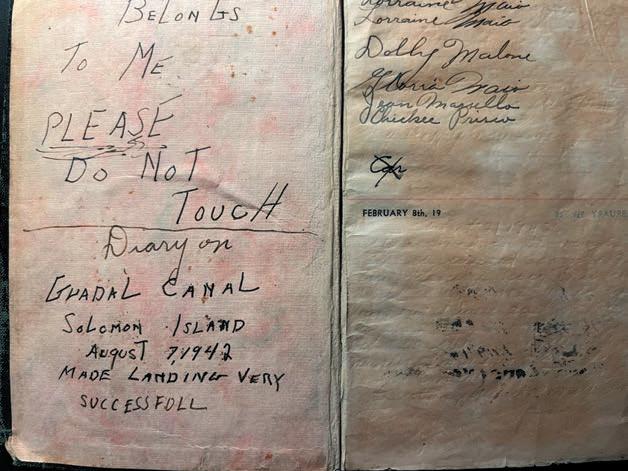 BELONGS
TO ME
PLEASE
DO NOT
TOUCH
Diary on
GUADAL CANAL
SOLOMON ISLAND
AUGUST 7, 1942
MADE LANDING VERY
SUCCESSFOLL
Lorraine Maio
Lorraine Maio
Dolly Malone
Gloria Maio
Jean
Chickee Prisco
FEBRUARY 8th, 19